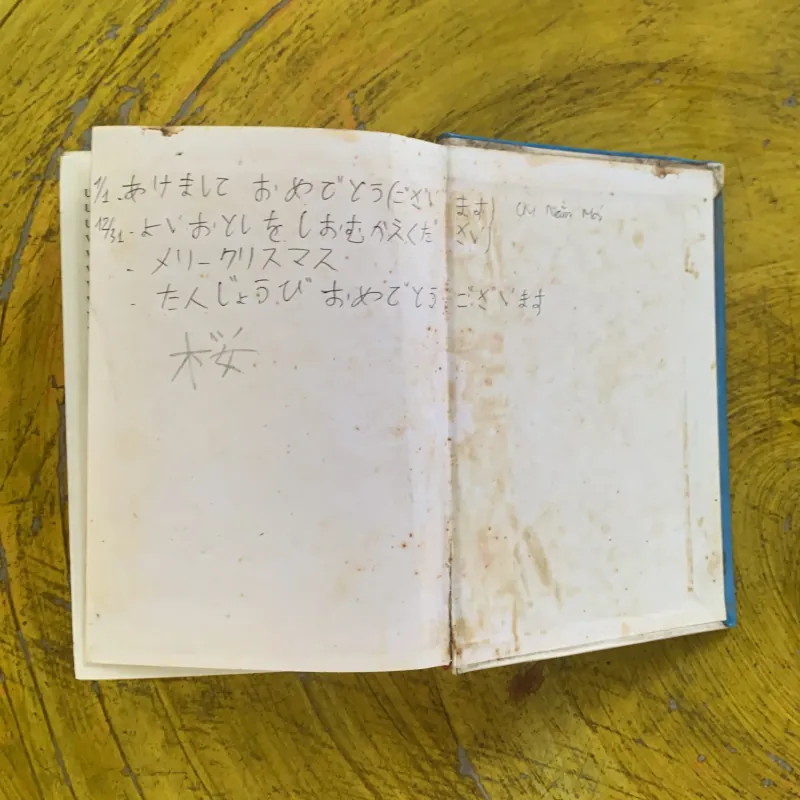 1/1. あけまして おめでとう(ございます)
12/31 - よいおとしを しおむかえくださ い)
- メリークリスマス
- たんじょうび おめでとうございます
桜